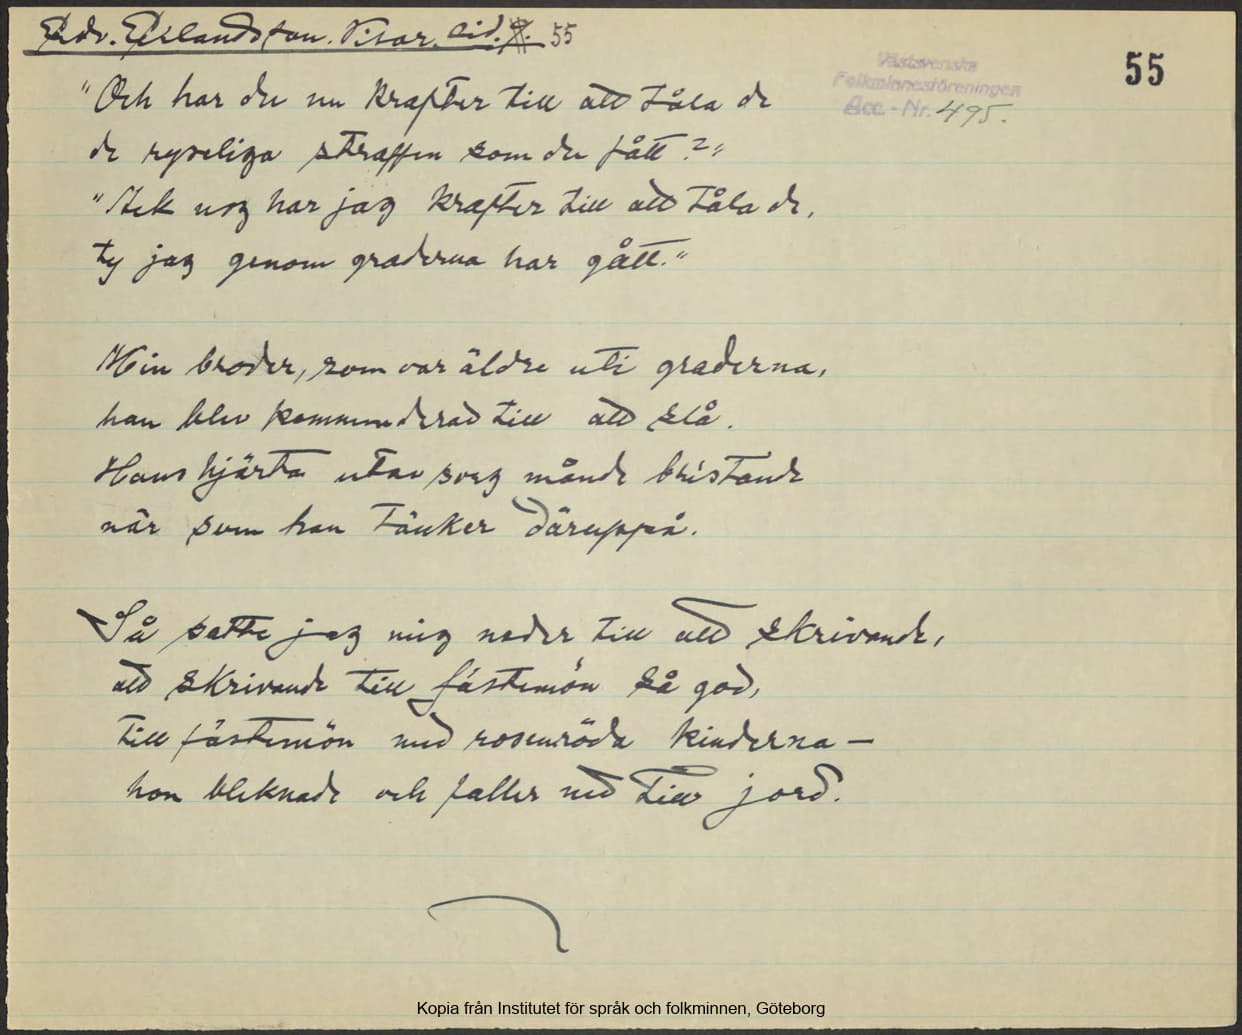 Edv. Erlandsson. Visor. sid. 55
55
Västsvenska
Folkminnesföreningen
Acc. - Nr. 495.
"Och har du nu krafter till att tåla de
de ryseliga straffen som du fått?"
"Ack nog har jag krafter till att tåla de,
ty jag genom graderna har gått."
Min broder, som var äldre uti graderna,
han blev kommenderad till att slå.
Hans hjärta utav sorg månde bristande
när som han tänker däruppå.
Så satte jag mig neder till att skrivande,
att skrivande till fästemön så god,
till fästemön med rosenröda kinderna —
hon bleknade och faller ned till jord.
Kopia från Institutet för språk och folkminnen, Göteborg